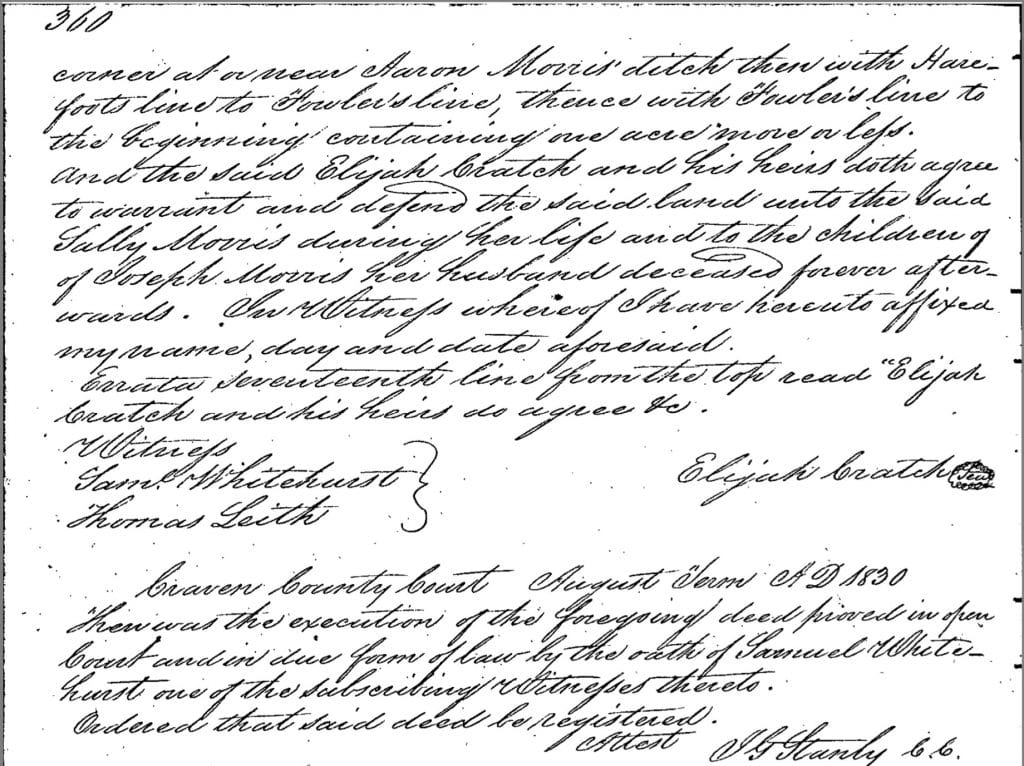 360
corner at or near Aaron Morris' ditch then with Hare-
foots line to Fowler's line, thence with Fowler's line to
the beginning containing one acre more or less.
And the said Elijah Cratch and his heirs doth agree
to warrant and defend the said land unto the said
Sally Morris during her life and to the children of
of Joseph Morris her husband deceased forever after-
wards. In Witness whereof I have hereuto affixed
my name, day and date aforesaid.
Errata seventeenth line from the top read "Elijah
Cratch and his heirs do agree &c.
Witness
Saml. Whitehurst
Elijah Cratch Seal
Thomas Leith
Craven County Court August Term A D 1830
Then was the execution of the foregoing deed proved in open
Court and in due form of law by the oath of Samuel White-
hurst one of the subscribing Witnesses thereto.
Ordered that said deed be registered.
Attest J G Stanly C.C.